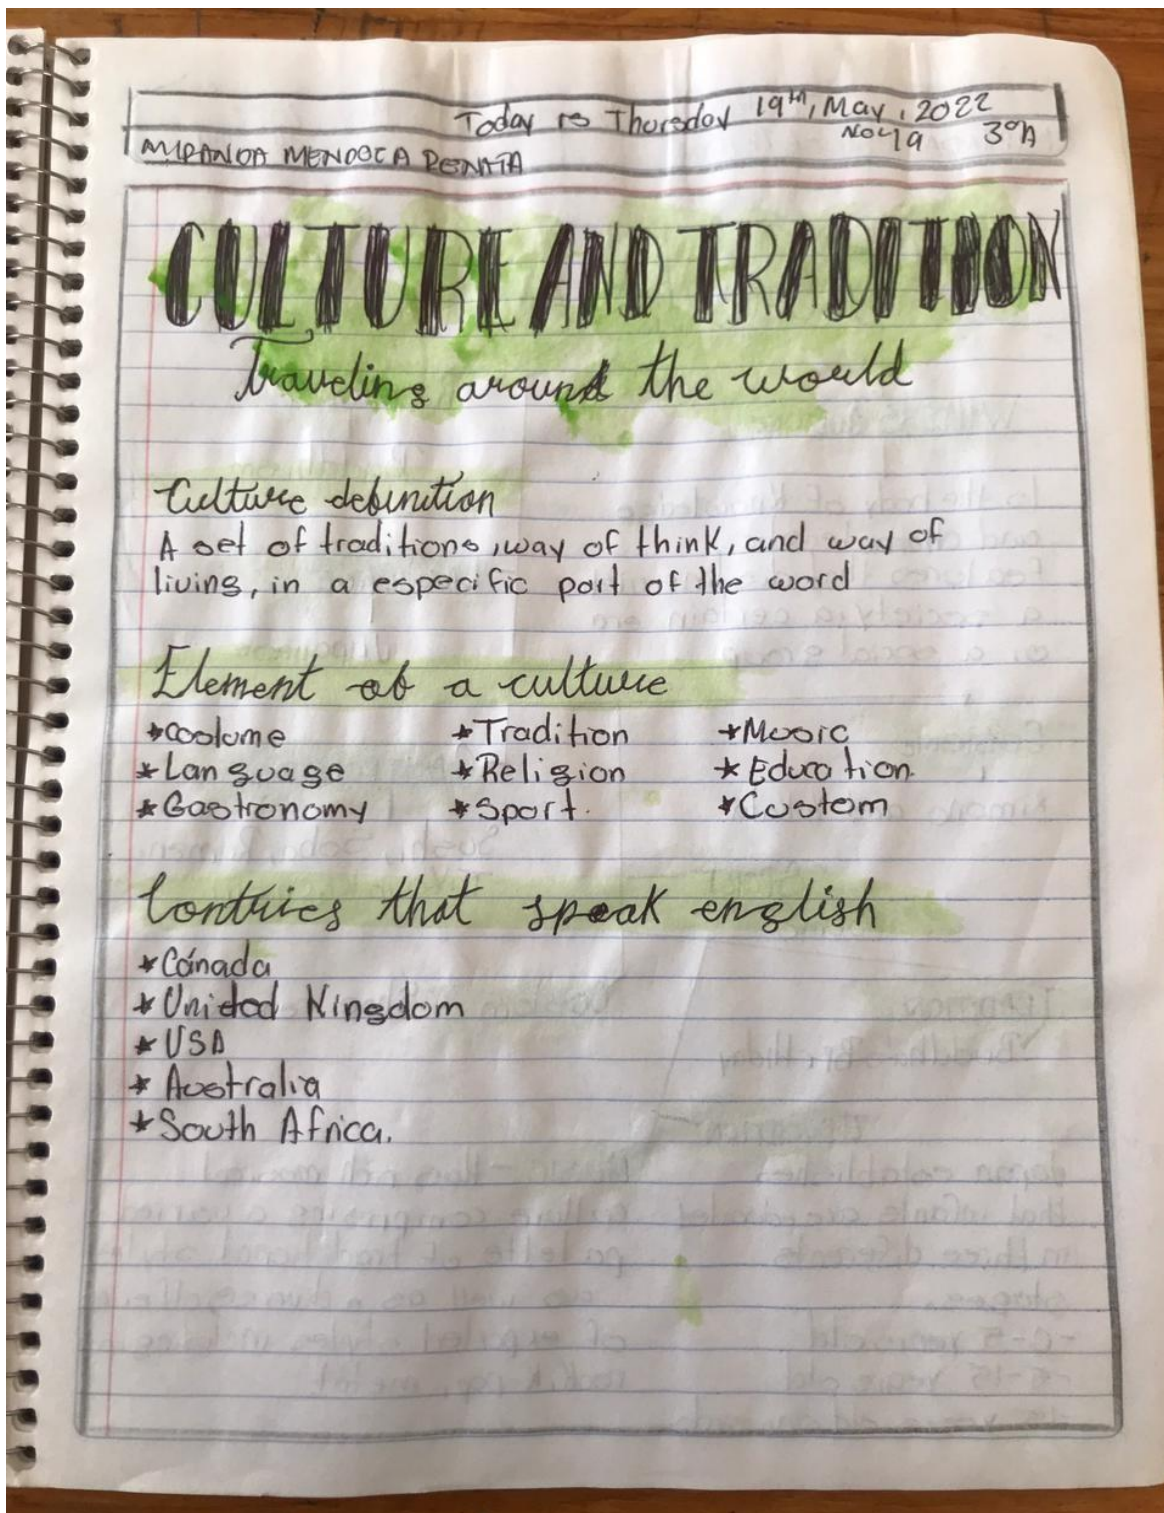 Today is Thursday 19th, May, 2022
No 19 3°A
MIRANDA MENDOZA RENATA
CULTURE AND TRADITION
Traveling around the world
Culture definition
A set of traditions, way of think, and way of
living, in a especific part of the word
Element of a culture
*Costume *Tradition *Music
*Language *Religion *Education.
*Gastronomy *Sport. *Custom
Contries that speak english
*Canada
*United Kingdom
*USA
*Australia
*South Africa.